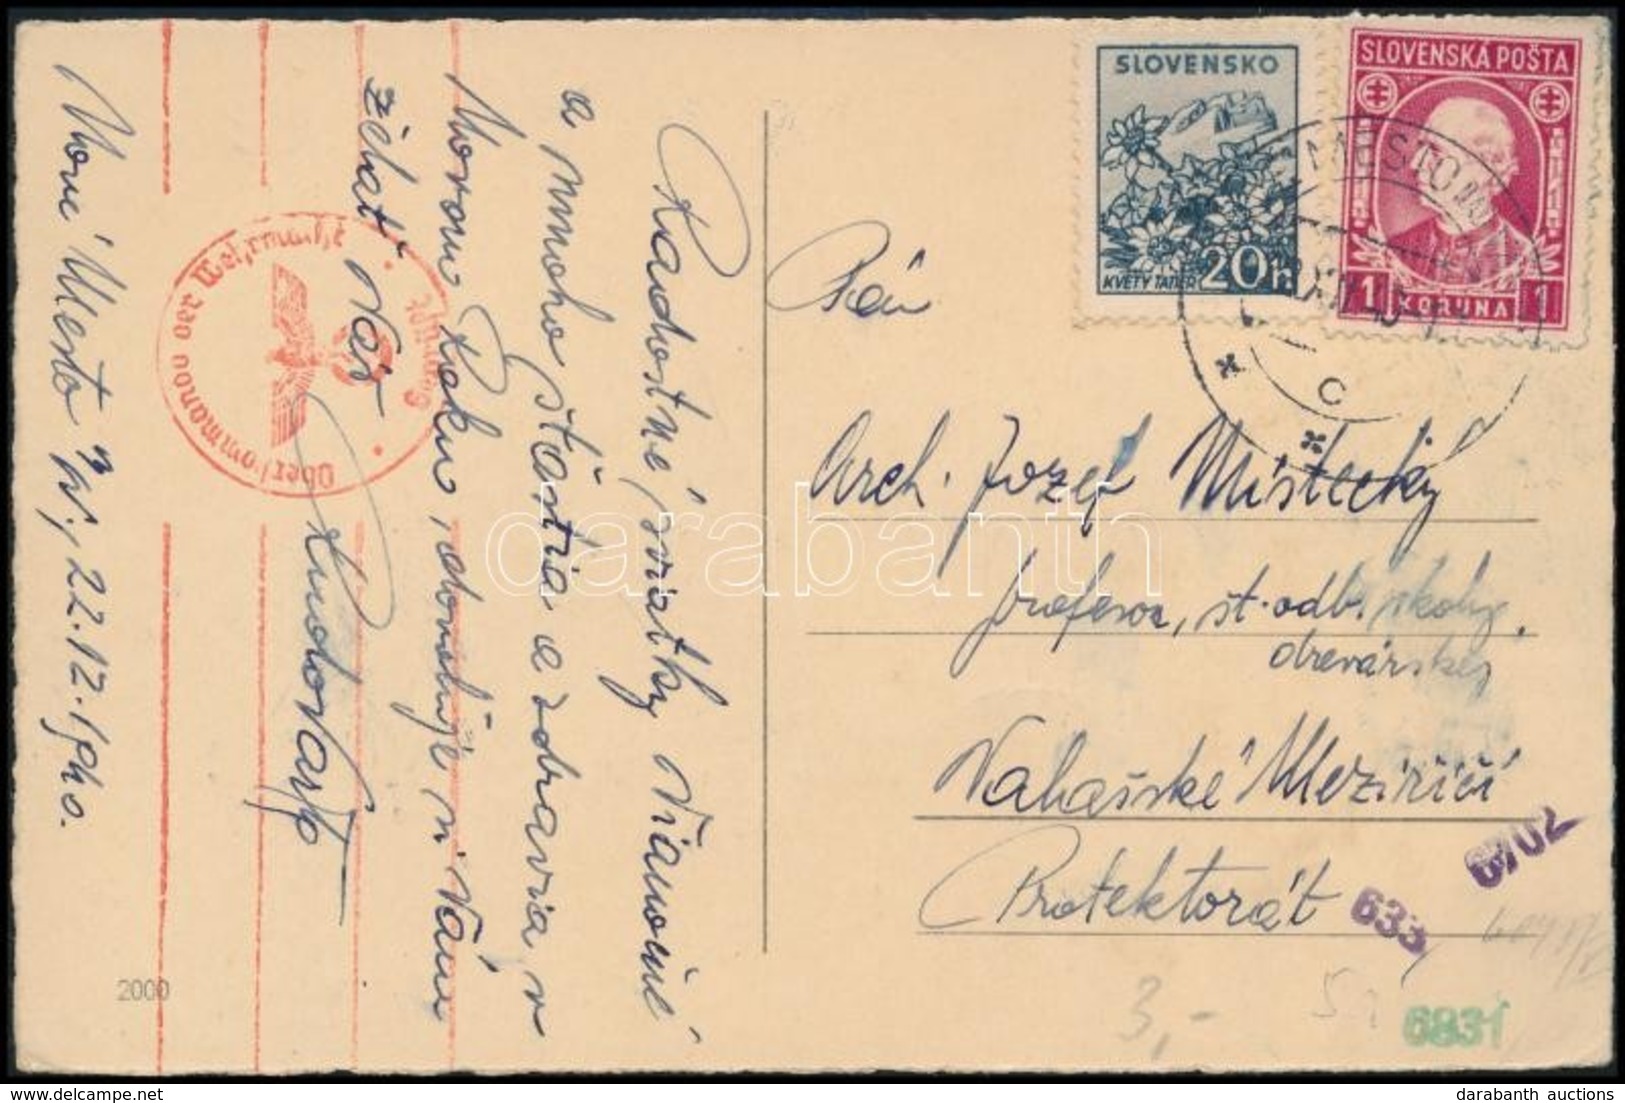 SLOVENSKO
KVETY TATIER
20h
SLOVENSKÁ POŠTA
1 KORUNA 1
C
Pán
Arch. Jozef Místecký
profesor, št. odb. školy
drevárskej
Valašské Meziříčí
Protektorát
633
6702
6831
3,-
Radostné sviatky Vianočné
a mnoho šťastia a zdravia v
Novom Roku dovoľuje si Vám
želať Váš
Nové Mesto n/V., 22.12.1940.
Oberkommando der Wehrmacht
2000
darabanth
darabanth auctions